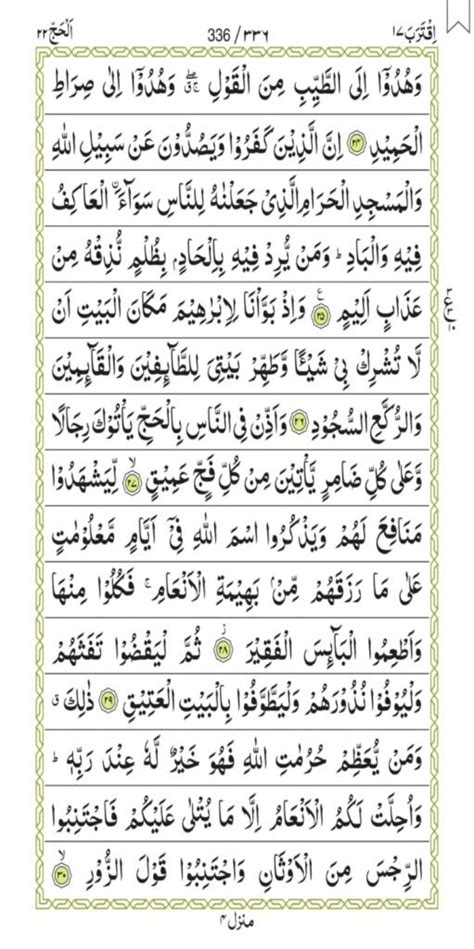 اِقْتَرَبَ ١٧ 336 / ٣٣٦ اَلْحَجّ ٢٢
وَهُدُوْٓا اِلَى الطَّيِّبِ مِنَ الْقَوْلِ ۖۚ وَهُدُوْٓا اِلٰى صِرَاطِ
الْحَمِيْدِ ﴿٢٤﴾ اِنَّ الَّذِيْنَ كَفَرُوْا وَيَصُدُّوْنَ عَنْ سَبِيْلِ اللّٰهِ
وَالْمَسْجِدِ الْحَرَامِ الَّذِيْ جَعَلْنٰهُ لِلنَّاسِ سَوَآءَۨ الْعَاكِفُ
فِيْهِ وَالْبَادِ ؕ وَمَنْ يُّرِدْ فِيْهِ بِاِلْحَادٍۭ بِظُلْمٍ نُّذِقْهُ مِنْ
عَذَابٍ اَلِيْمٍ ﴿٢٥﴾ وَاِذْ بَوَّاْنَا لِاِبْرٰهِيْمَ مَكَانَ الْبَيْتِ اَنْ
لَّا تُشْرِكْ بِيْ شَيْـًٔا وَّطَهِّرْ بَيْتِيَ لِلطَّآئِفِيْنَ وَالْقَآئِمِيْنَ
وَالرُّكَّعِ السُّجُوْدِ ﴿٢٦﴾ وَاَذِّنْ فِى النَّاسِ بِالْحَجِّ يَاْتُوْكَ رِجَالًا
وَّعَلٰى كُلِّ ضَامِرٍ يَّاْتِيْنَ مِنْ كُلِّ فَجٍّ عَمِيْقٍ ﴿٢٧﴾ لِّيَشْهَدُوْا
مَنَافِعَ لَهُمْ وَيَذْكُرُوا اسْمَ اللّٰهِ فِيْٓ اَيَّامٍ مَّعْلُوْمٰتٍ
عَلٰى مَا رَزَقَهُمْ مِّنْۢ بَهِيْمَةِ الْاَنْعَامِ ۚ فَكُلُوْا مِنْهَا
وَاَطْعِمُوا الْبَآئِسَ الْفَقِيْرَ ﴿٢٨﴾ ثُمَّ لْيَقْضُوْا تَفَثَهُمْ
وَلْيُوْفُوْا نُذُوْرَهُمْ وَلْيَطَّوَّفُوْا بِالْبَيْتِ الْعَتِيْقِ ﴿٢٩﴾ ذٰلِكَ ق
وَمَنْ يُّعَظِّمْ حُرُمٰتِ اللّٰهِ فَهُوَ خَيْرٌ لَّهٗ عِنْدَ رَبِّهٖ ؕ
وَاُحِلَّتْ لَكُمُ الْاَنْعَامُ اِلَّا مَا يُتْلٰى عَلَيْكُمْ فَاجْتَنِبُوا
الرِّجْسَ مِنَ الْاَوْثَانِ وَاجْتَنِبُوْا قَوْلَ الزُّوْرِ ﴿٣٠﴾
منزل ٤